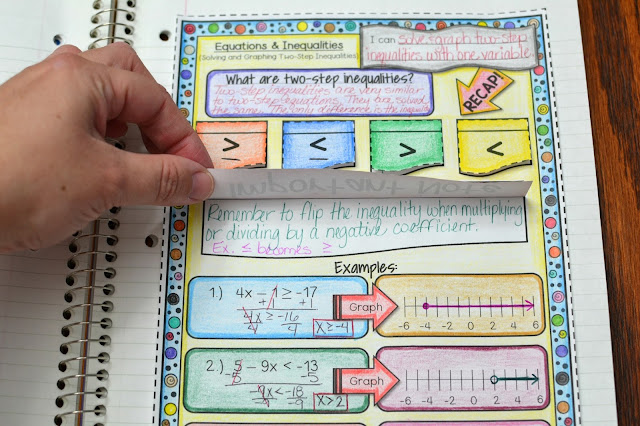 Equations & Inequalities
(Solving and Graphing Two-Step Inequalities)
I can solve & graph two-step
inequalities with one variable
What are two-step inequalities?
Two-step inequalities are very similar
to two-step equations. They are solved
the same. The only difference is the
RECAP!
≥ ≤ > <
Important Note
Remember to flip the inequality when multiplying
or dividing by a negative coefficient.
Ex. ≤ becomes ≥
Examples:
1.) 4x - 1 ≥ -17
+1 +1
4x ≥ -16
4 4
x ≥ -4
Graph
-6 -4 -2 0 2 4 6
2.) 5 - 9x < -13
-5
-9x < -18
-9 -9
x > 2
Graph
-6 -4 -2 0 2 4 6